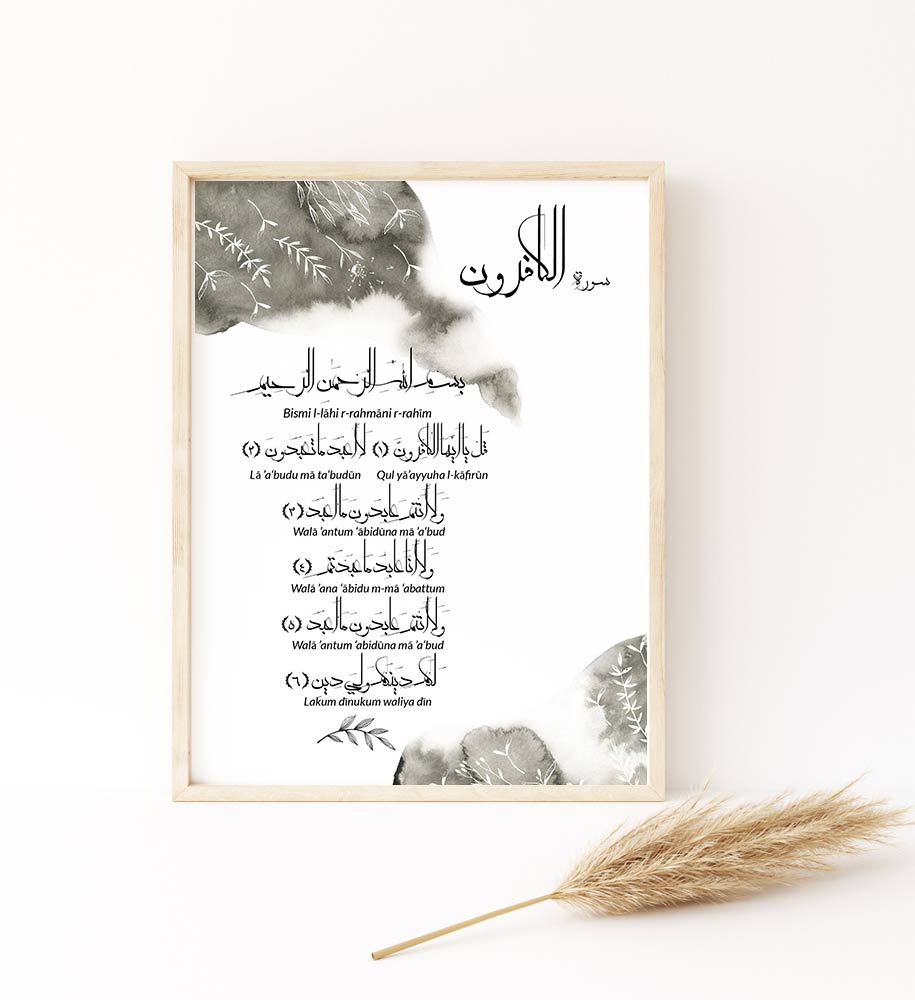 سورة الكافرون
بسم الله الرحمن الرحيم
Bismi l-lāhi r-rahmāni r-rahīm
قل يا أيها الكافرون (١) لا أعبد ما تعبدون (٢)
Lā 'a‘budu mā ta‘budūn Qul yā'ayyuha l-kāfirūn
ولا أنتم عابدون ما أعبد (٣)
Walā 'antum ‘ābidūna mā 'a‘bud
ولا أنا عابد ما عبدتم (٤)
Walā 'ana ‘ābidu m-mā ‘abattum
ولا أنتم عابدون ما أعبد (٥)
Walā 'antum ‘abidūna mā 'a‘bud
لكم دينكم ولي دين (٦)
Lakum dīnukum waliya dīn